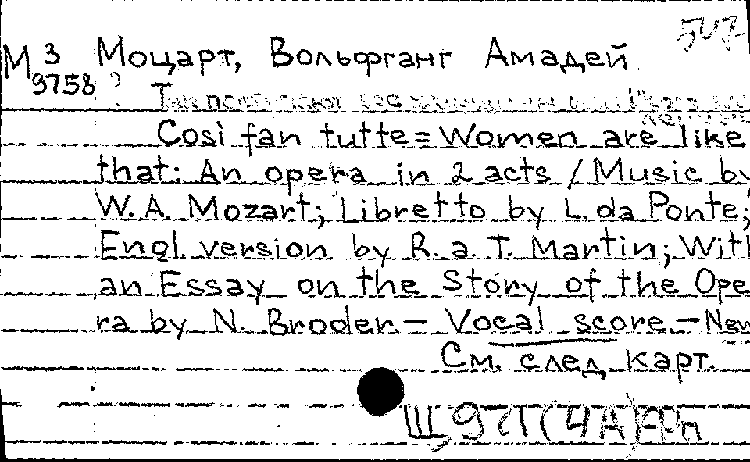 М 3 Моцарт, Вольфганг Амадей
9758
Così fan tutte = Women are like
that: An opera in 2 acts / Music by
W. A. Mozart; Libretto by L. da Ponte;
Engl. version by R. a. T. Martin; With
an Essay on the Story of the Ope
ra by N. Broder. — Vocal score. — New
См. след. карт.